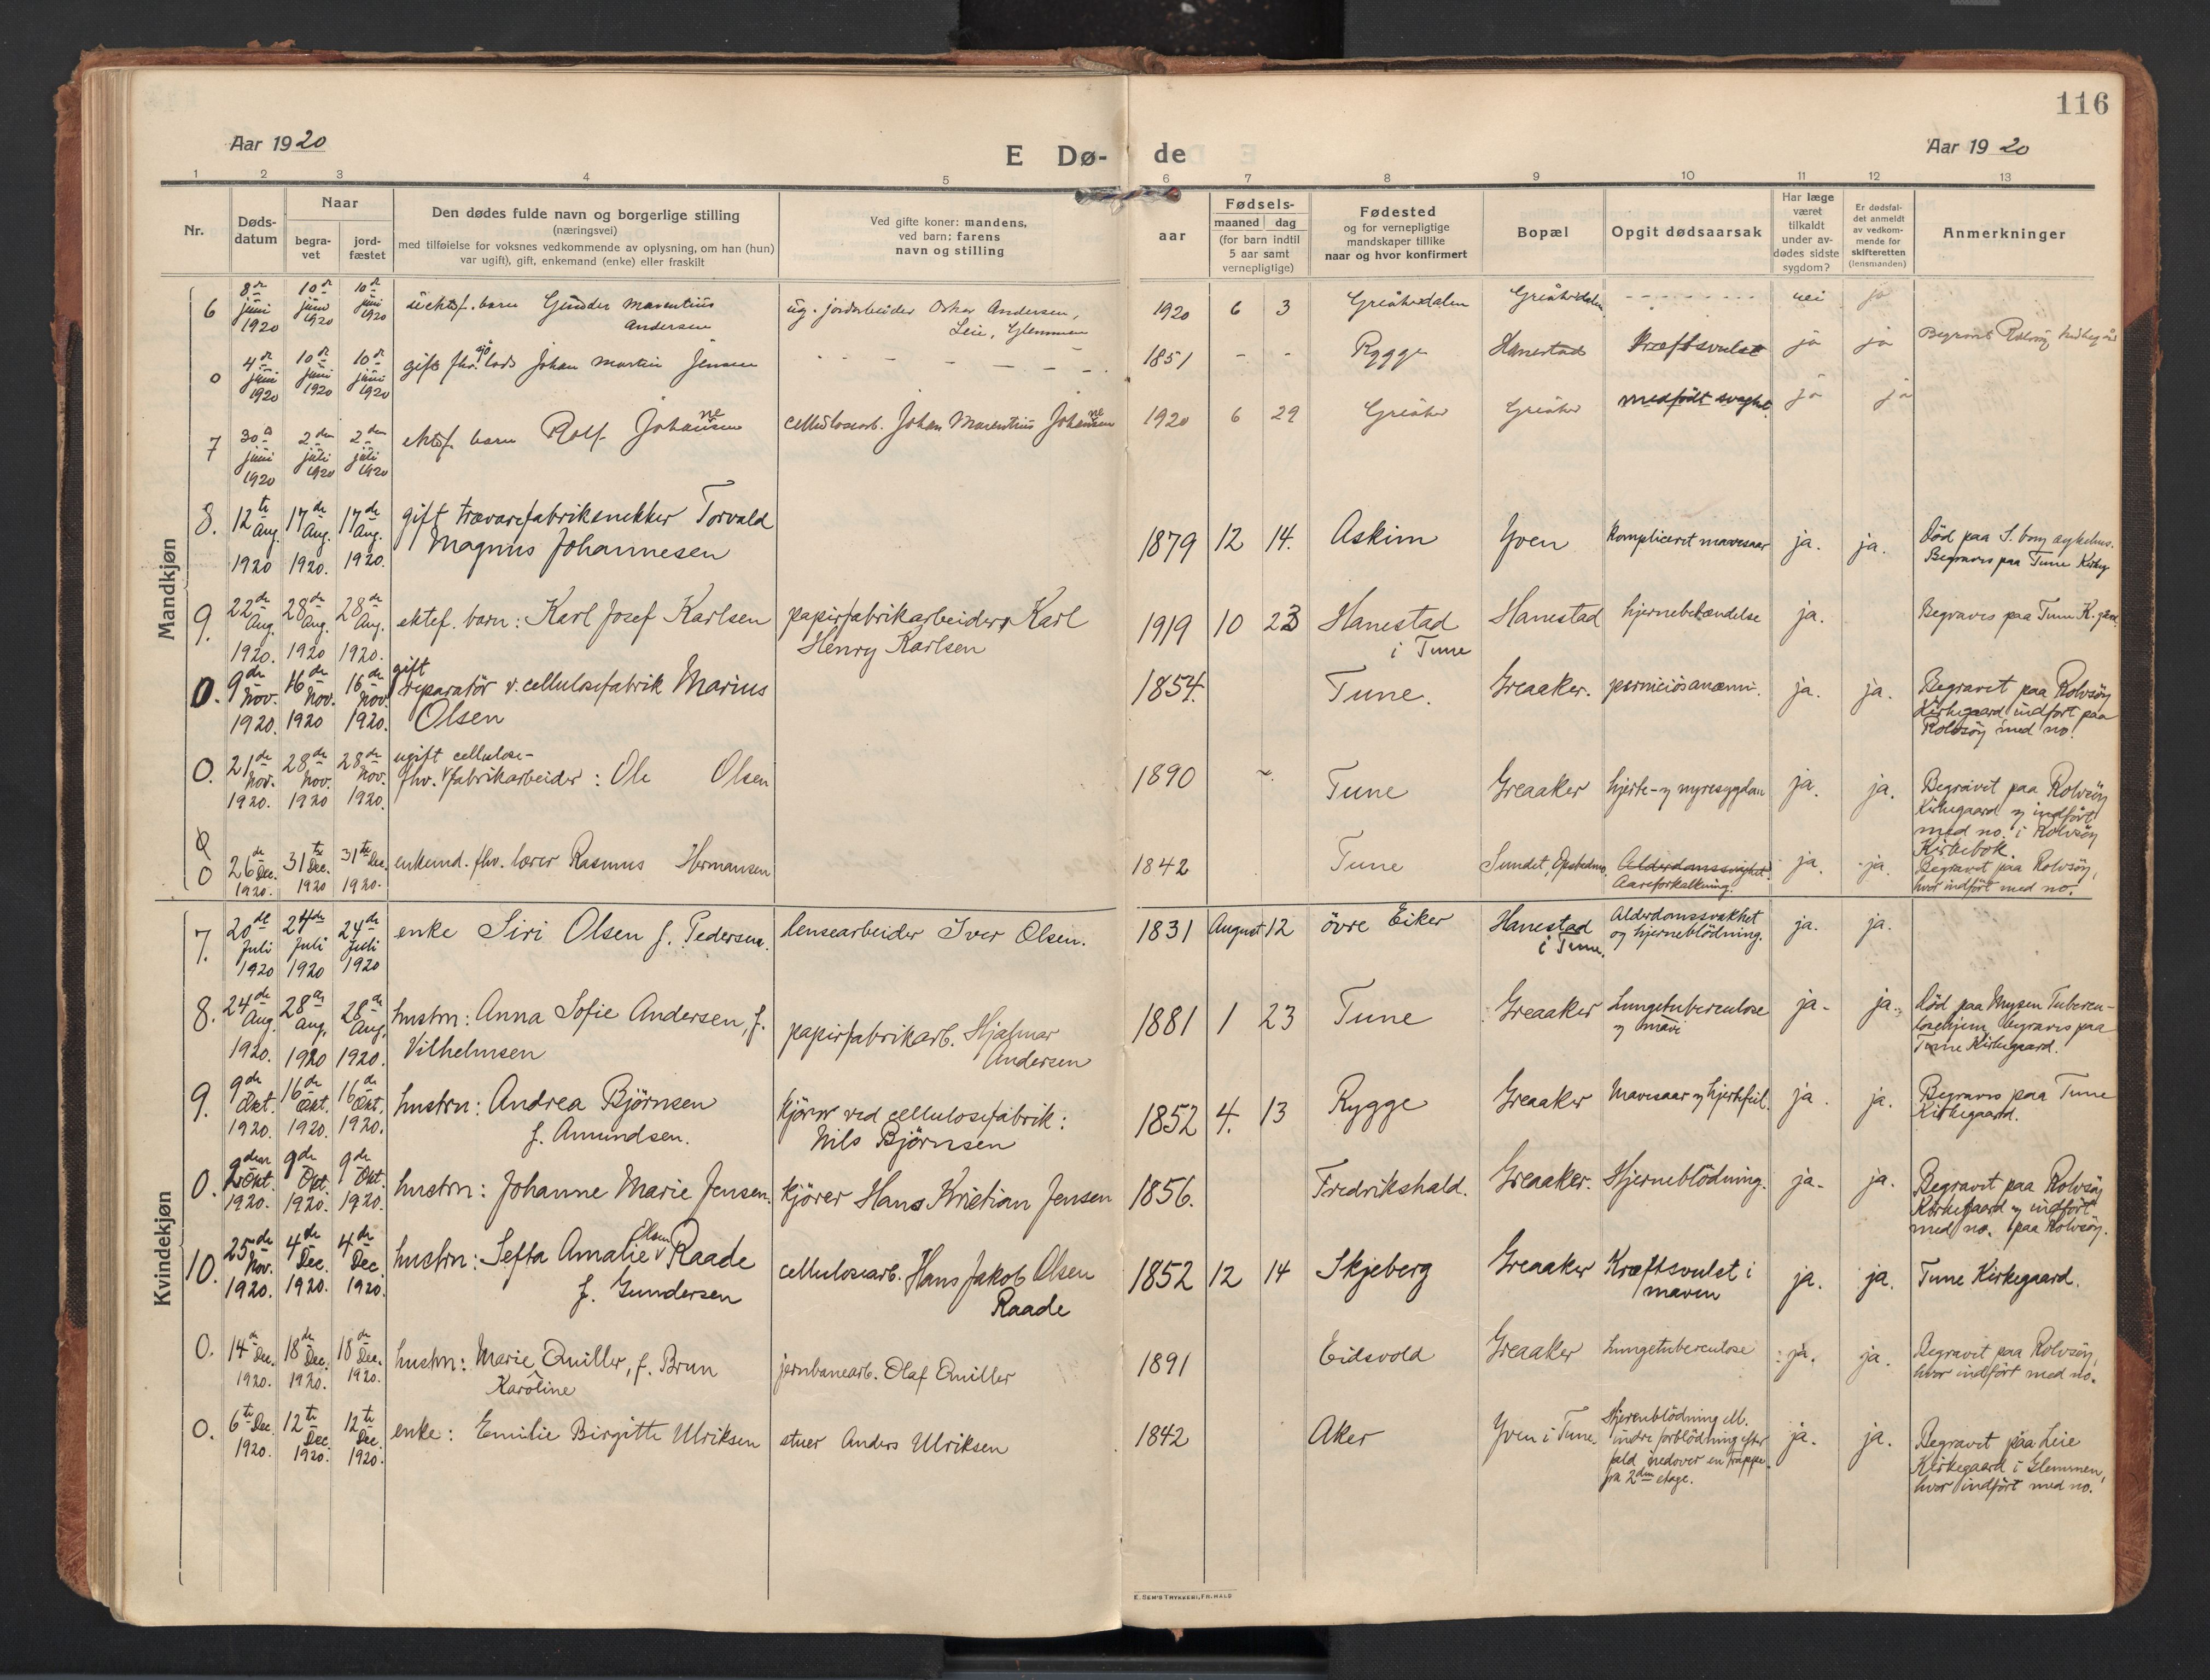 116
Aar 1920
E Dø-
de
Aar 1920
1 2 3 4 5 6 7 8 9 10 11 12 13
Nr.
Døds-
datum
Naar
begra-
vet
jord-
fæstet
Den dødes fulde navn og borgerlige stilling
(næringsvei)
med tilføielse for voksnes vedkommende av oplysning, om han (hun)
var ugift), gift, enkemand (enke) eller fraskilt
Ved gifte koner: mandens,
ved barn: farens
navn og stilling
aar
Fødsels-
maaned dag
(for barn indtil
5 aar samt
vernepligtige)
Fødested
og for vernepligtige
mandskaper tillike
naar og hvor konfirmert
Bopæl
Opgit dødsaarsak
Har læge
været
tilkaldt
under av-
dødes sidste
sygdom?
Er dødsfal-
det anmeldt
av vedkom-
mende for
skifteretten
(lensmanden)
Anmerkninger
Mandkjøn
6 8de juni 1920 10de juni 1920 10de juni 1920 barn Gunder Marentius
Andersen
ug. jordarbeider Oskar Andersen,
Leie, Glemmen
1920 6 3 Greåkerdalen Greåkerdalen - - - - - nei ja
0 4de juni 1920 10de juni 1920 10de juni 1920 gift fhv. lods Johan Martin Jensen
1851 - - Rygge Hanestad Kræftsvulst ja ja Begravet Rolvsøy kirkegård
7 30te juni 1920 2den juli 1920 2den juli 1920 ektef. barn Rolf Johannesen
cellulosearb. Johan Marentius Johannesen
1920 6 29 Greåker Greåker medfødt svaghet ja ja
8. 12te Aug. 1920 17de Aug. 1920. 17de Aug. 1920. gift trævarefabriksnekker Torvald
Magnus Johannesen
1879 12 14. Askim Yven kompliceret mavesaar ja. ja. Død paa S. borg sykehus.
Begraves paa Tune Kirkeg
9. 22de Aug. 1920. 28de Aug. 1920 28de Aug. 1920. ektef. barn: Karl Josef Karlsen
papirfabrikarbeider Karl
Henry Karlsen
1919 10 23 Hanestad
i Tune
Hanestad hjernebetændelse ja. Begraves paa Tune K. gård
0. 9de Nov. 1920. 16de Nov. 1920 16de Nov. 1920. gift
reparatør v. cellulosefabrik Marius
Olsen
1854. Tune. Greaaker. perniciøs anæmi. ja. ja. Begravet paa Rolvsøy
Kirkegaard indført paa
Rolvsøy med no.
0. 21de Nov. 1920. 28de Nov. 1920 28de Nov. 1920. ugift cellulose-
fhv. fabrikarbeider: Ole Olsen
1890 Tune Greaaker hjerte- og nyresygdom ja. ja. Begravet paa Rolvsøy
Kirkegaard og indført
med no. i Rolvsøy
Kirkebok.
0 26de Dec. 1920. 31te Dec. 1920 31te Dec. 1920. enkemd. fhv. lærer Rasmus Hermansen
1842 Tune Sundet, Opstedmo Alderdomssvaghet
Aareforkalkning.
ja. ja. Begravet paa Rolvsøy,
hvor indført med no.
Kvindekjøn
7. 20de Juli 1920 24de Juli 1920 24de Juli 1920 enke Siri Olsen f. Pedersen.
lensearbeider Iver Olsen.
1831 August 12 øvre Eiker Hanestad
i Tune.
Alderdomssvakhet
og hjerneblødning.
ja. ja.
8. 24de Aug. 1920. 28de Aug. 1920 28de Aug. 1920. hustru: Anna Sofie Andersen, f.
Vilhelmsen
papirfabrikarb. Hjalmar
Andersen
1881 1 23 Tune Greaaker Lungetuberculose
og mave
ja- ja. Død paa Mysen Tubercu-
losehjem, begraves paa
Tune Kirkegaard.
9. 9de Okt. 1920. 16de Okt. 1920. 16de Okt. 1920. hustru: Andrea Bjørnsen
f. Amundsen.
kjører ved cellulosefabrik:
Nils Bjørnsen
1852 4. 13 Rygge Greaaker Mavesaar og hjertefeil. ja. ja. Begraves paa Tune
Kirkegaard.
0. 2den Okt. 1920. 9de Okt. 1920. 9de Okt. 1920. hustru: Johanne Marie Jensen.
kjører Hans Kristian Jensen
1856. Fredrikshald. Greaaker. Hjerneblødning. ja- ja. Begravet paa Rolvsøy
Kirkegaard og indført
med no. paa Rolvsøy.
10. 25de Nov. 1920. 4de Dec. 1920. 4de Dec. 1920. hustru: Sefta Amalie Olsen Raade
f. Gundersen
cellulosearb. Hans Jakob Olsen
Raade
1852 12 14 Skjeberg Greaaker Kræftsvulst i
maven
ja. ja. Tune Kirkegaard.
0. 14de Dec. 1920. 18de Dec. 1920. 18de Dec. 1920. hustru: Marie Quiller, f. Brun
Karoline
jernbanearb. Olaf Quiller
1891 Eidsvold Greaaker Lungetuberculose ja. ja. Begravet paa Rolvsøy,
hvor indført med no.
0. 6te Dec. 1920. 12te Dec. 1920. 12te Dec. 1920. enke: Emilie Birgitte Ulriksen
stuer Anders Ulriksen
1842 Aker Yven i Tune. Hjerneblødning ell.
indre forblødning efter
fald nedover en trappe
fra 2den etage.
ja. ja. Begravet paa Leie
Kirkegaard i Glemmen,
hvor indført med no.
E. SEM'S TRYKKERI, FR.HALD